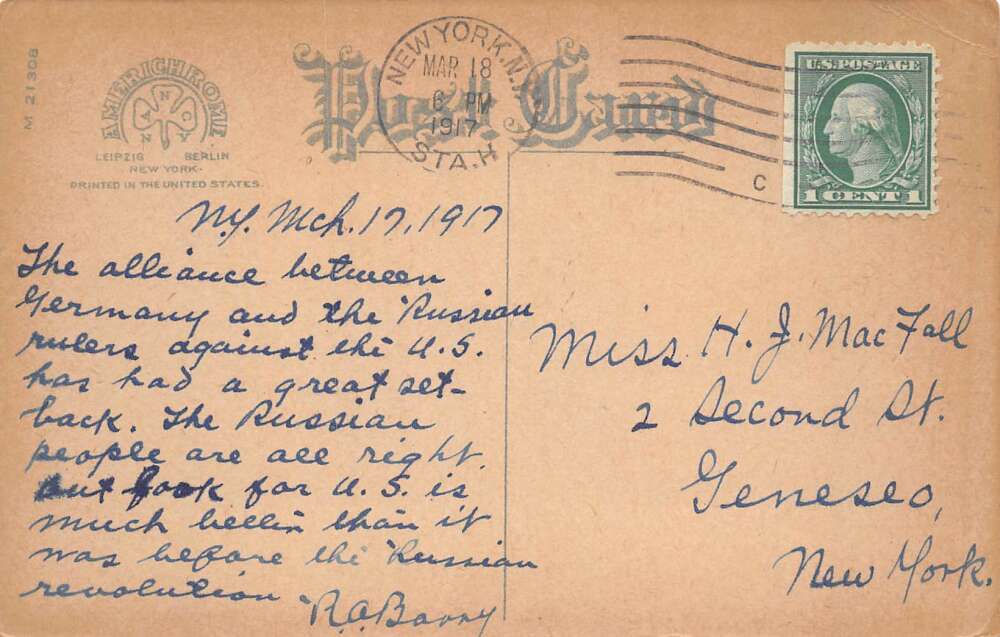 M 21308
AMERICHROME
A N C N Y
LEIPZIG BERLIN
NEW YORK.
PRINTED IN THE UNITED STATES.
Post Card
NEW YORK, N.Y.
MAR 18
6 PM
1917
STA. H
C
U.S. POSTAGE
1 CENT 1
N.Y. Mch. 17, 1917
The alliance between
Germany and the Russian
rulers against the U.S.
has had a great set-
back. The Russian
people are all right.
but look for U.S. is
much better than it
was before the Russian
revolution
R.A. Barry
Miss H. J. MacFall
2 Second St.
Geneseo,
New York.